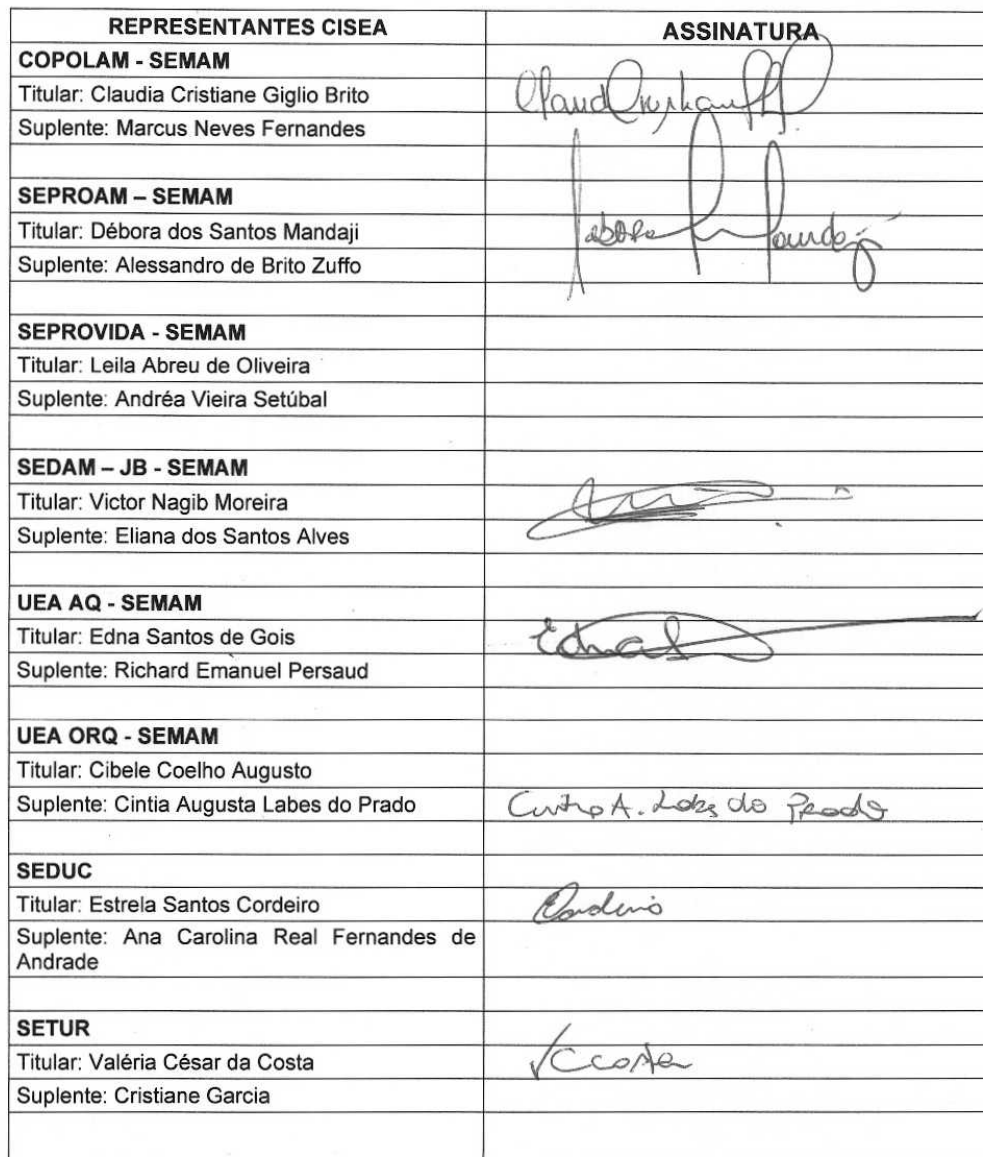 REPRESENTANTES CISEA
ASSINATURA
COPOLAM - SEMAM
Titular: Claudia Cristiane Giglio Brito
Suplente: Marcus Neves Fernandes
SEPROAM – SEMAM
Titular: Débora dos Santos Mandaji
Suplente: Alessandro de Brito Zuffo
SEPROVIDA - SEMAM
Titular: Leila Abreu de Oliveira
Suplente: Andréa Vieira Setúbal
SEDAM – JB - SEMAM
Titular: Victor Nagib Moreira
Suplente: Eliana dos Santos Alves
UEA AQ - SEMAM
Titular: Edna Santos de Gois
Suplente: Richard Emanuel Persaud
UEA ORQ - SEMAM
Titular: Cibele Coelho Augusto
Suplente: Cintia Augusta Labes do Prado
A. do Prado
SEDUC
Titular: Estrela Santos Cordeiro
Suplente: Ana Carolina Real Fernandes de
Andrade
SETUR
Titular: Valéria César da Costa
VCCosta
Suplente: Cristiane Garcia